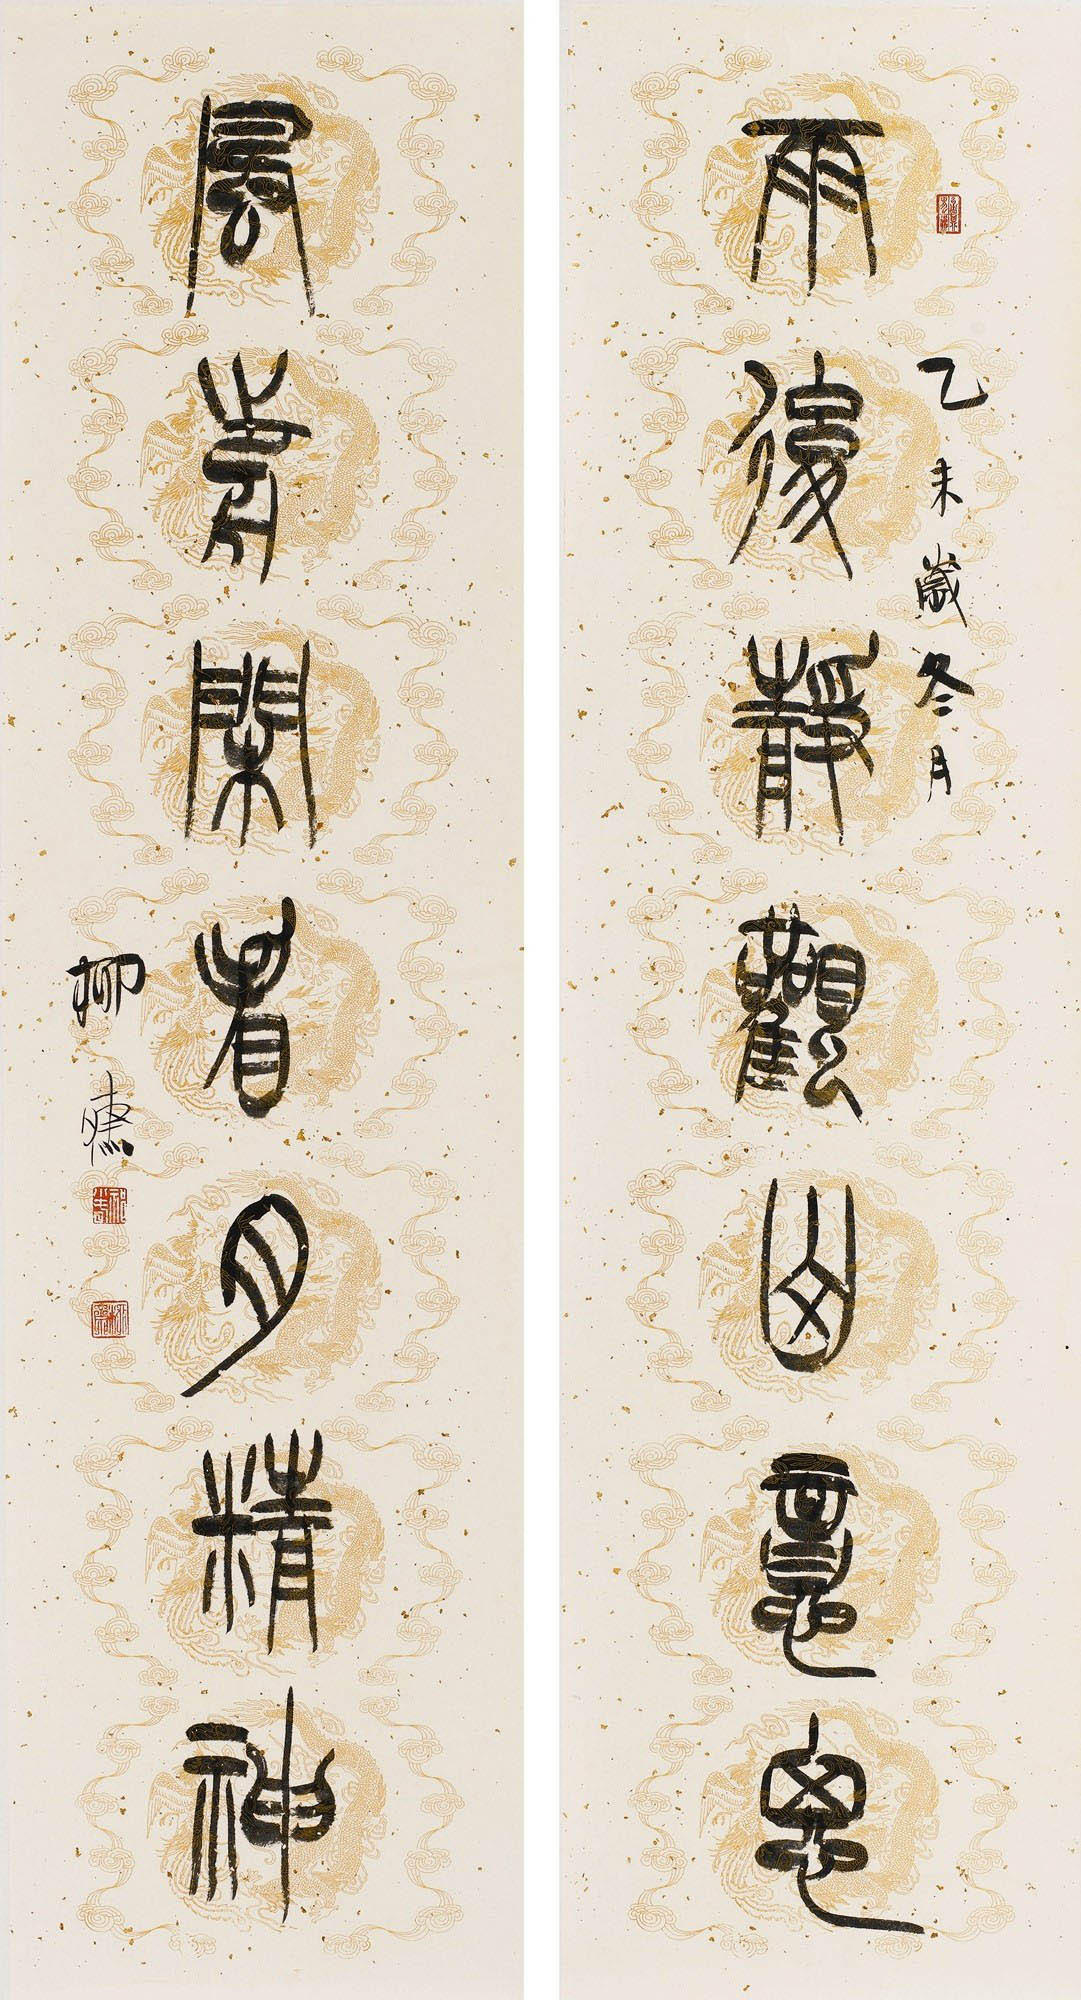 雨後靜觀山意思
乙未歲冬月
風前閑看月精神